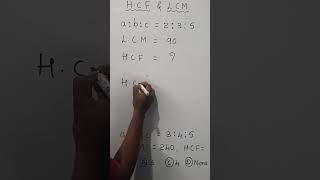 H.C.F & L.C.M
a:b:c = 2:3:5
L.C.M = 90
H.C.F = ?
H.C
H.C
= 3:4:5
= 240, HCF=
C 4 D None